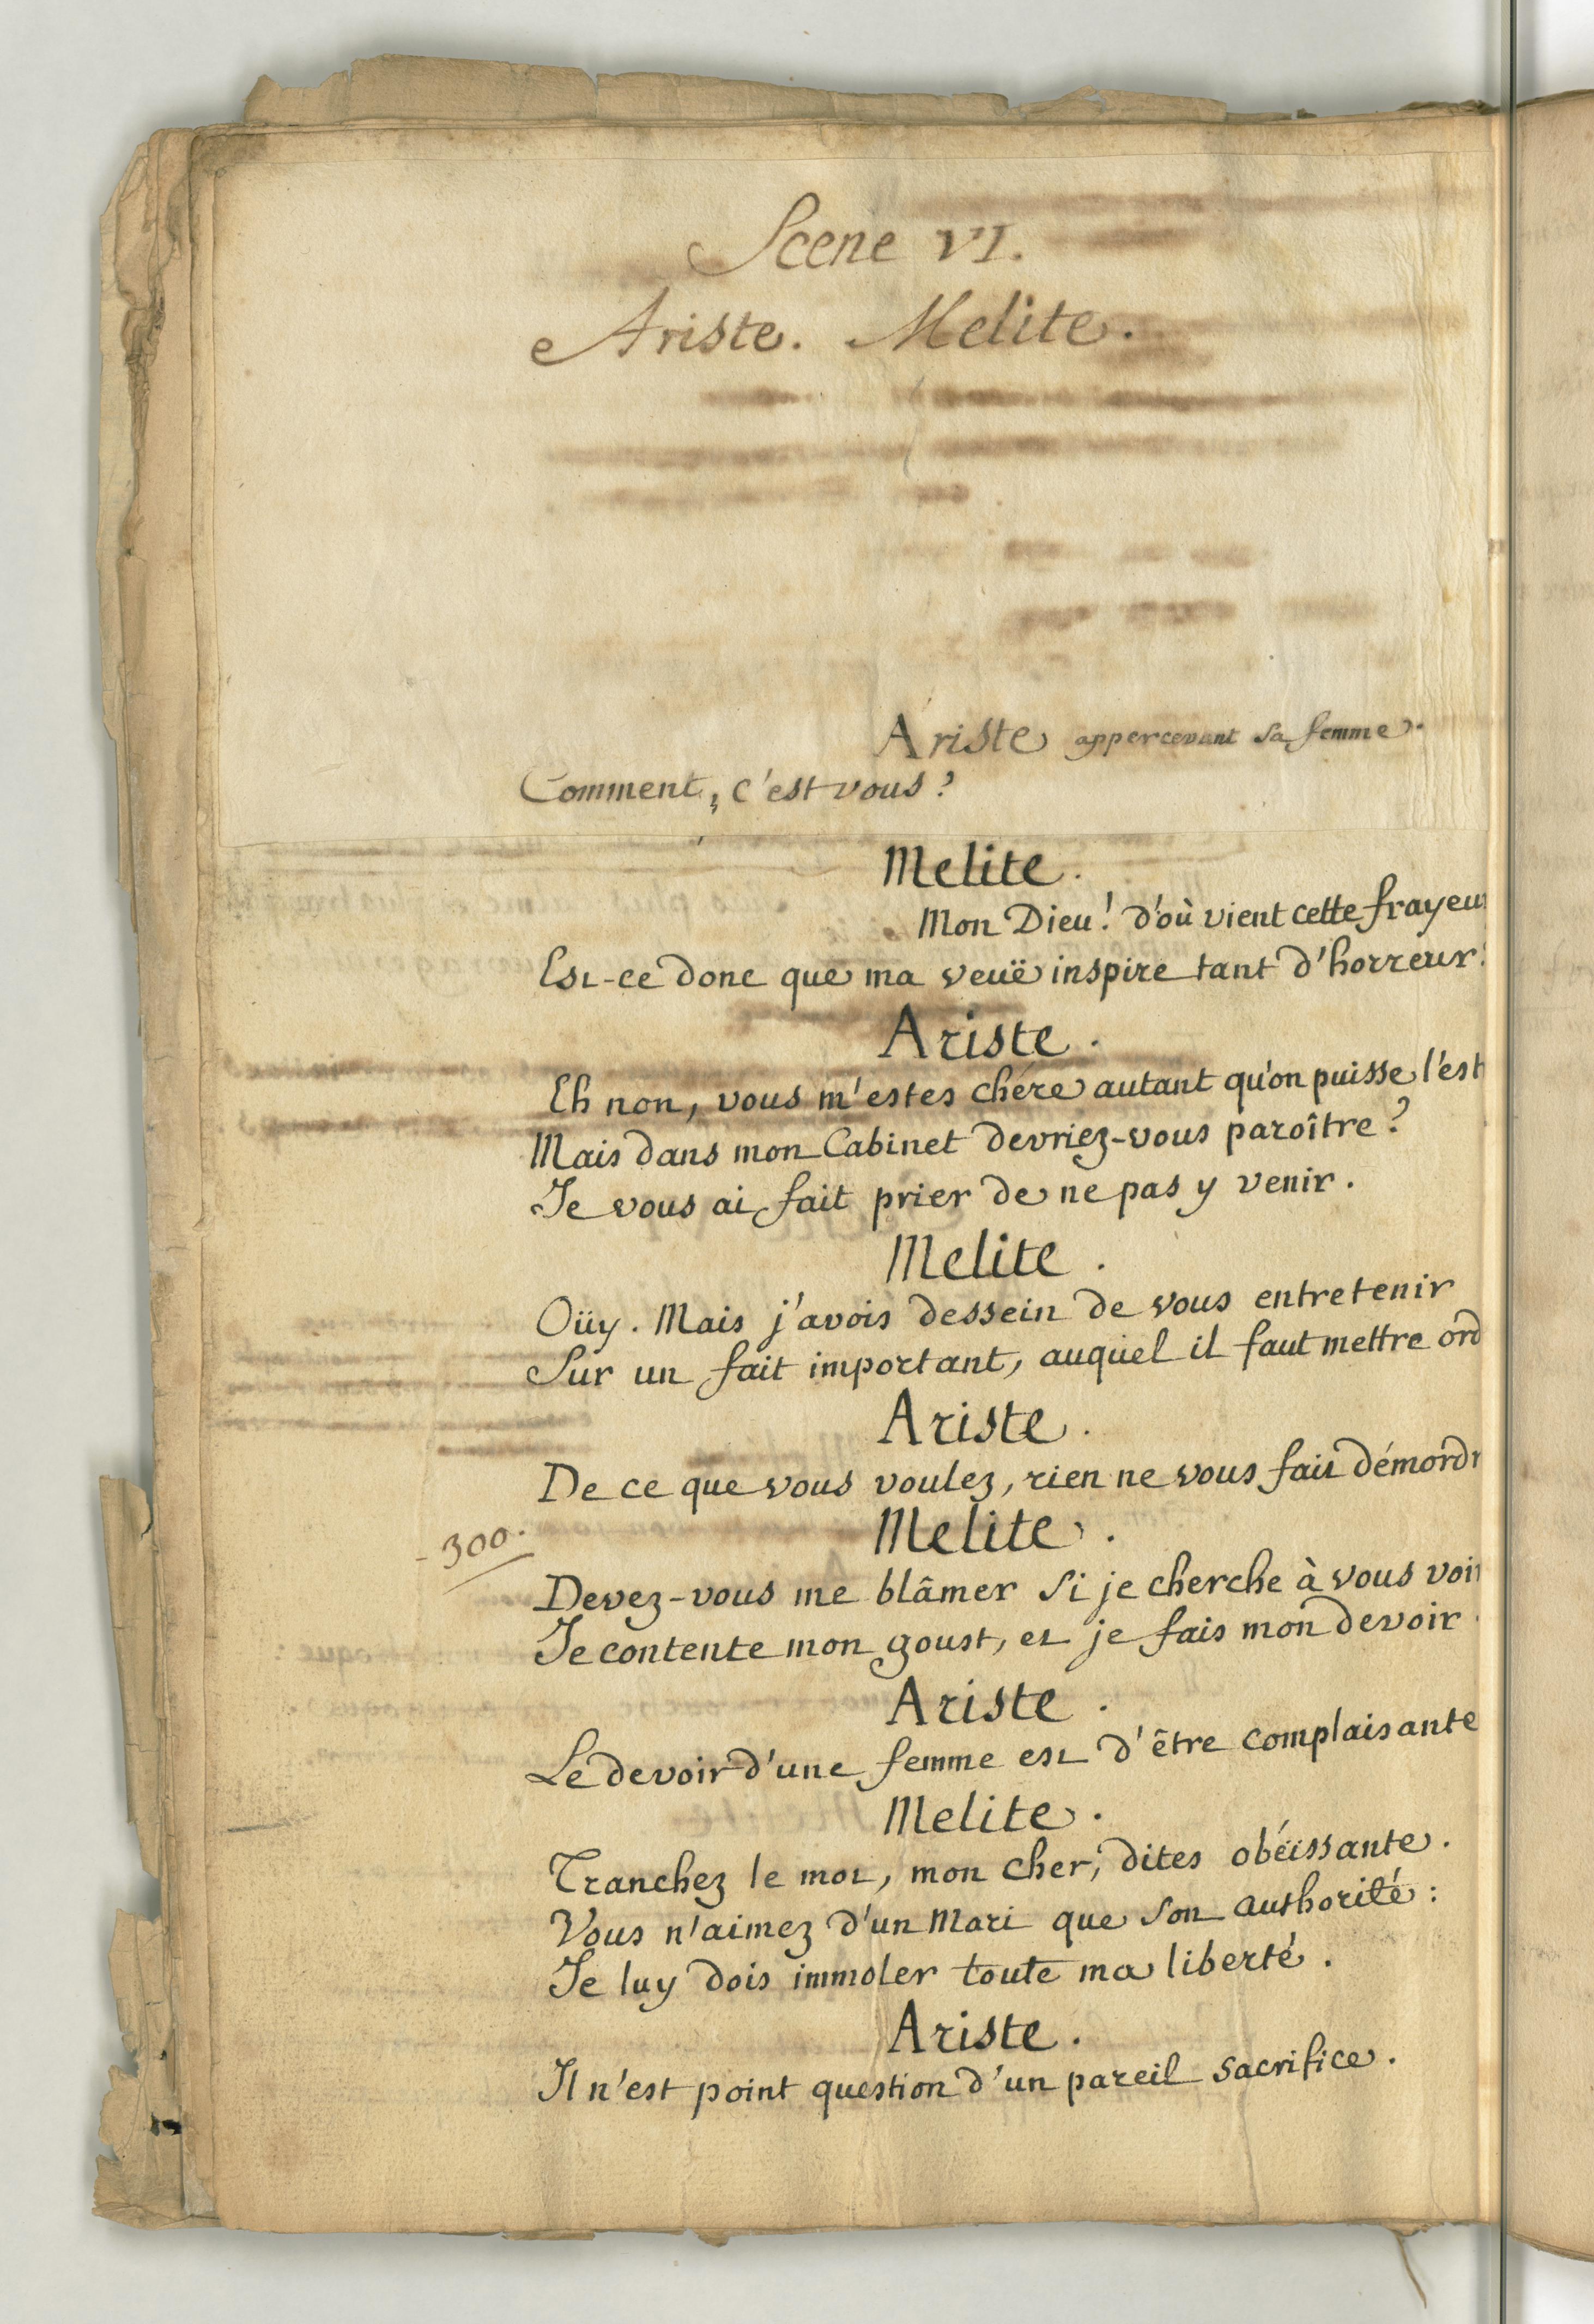 Scene VI.
Ariste. Melite.
Ariste appercevant sa femme.
Comment, c'est vous?
Melite.
Mon Dieu! d'où vient cette frayeu
Est-ce donc que ma veuë inspire tant d'horreur
Ariste.
Eh non, vous m'estes chére autant qu'on puisse l'est
Mais dans mon Cabinet devriez-vous paroître?
Je vous ai fait prier de ne pas y venir.
Melite.
Oüy. Mais j'avois dessein de vous entretenir
Sur un fait important, auquel il faut mettre ord
Ariste.
De ce que vous voulez, rien ne vous fait démord
Melite.
- 300.
Devez-vous me blâmer si je cherche à vous voi
Je contente mon goust, et je fais mon devoir
Ariste.
Le devoir d'une femme est d'être complaisante
Melite.
Tranchez le mot, mon cher, dites obéissante.
Vous n'aimez d'un Mari que son authorité:
Je luy dois immoler toute ma liberté.
Ariste.
Il n'est point question d'un pareil sacrifice.